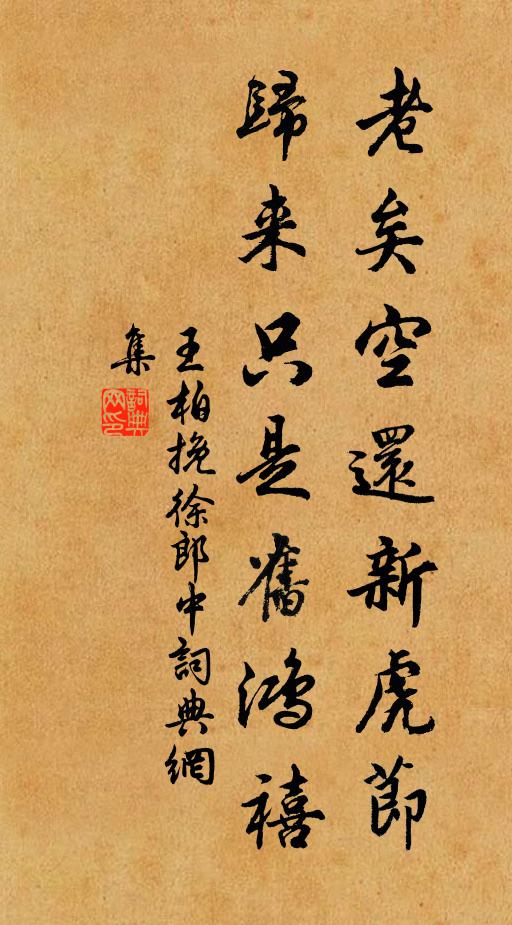 老矣空還新虎節
歸来只是舊鴻禧
王柏挽徐郎中詞典網
集
詞典
网印